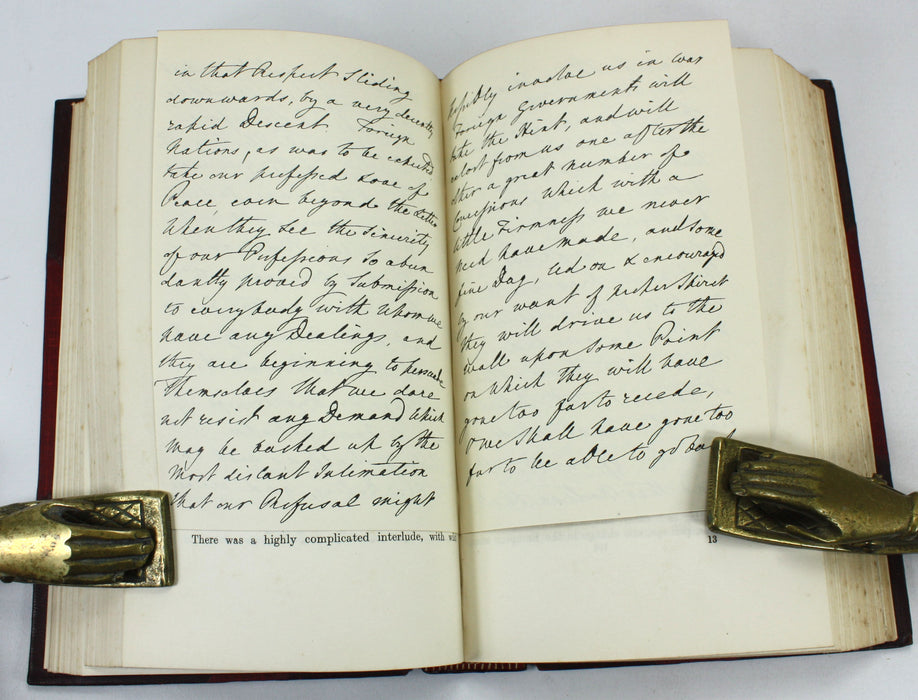 in that Respect Sliding
downwards, by a very decently
rapid Descent Foreign
Nations, as was to be expected
take our professed Love of
Peace, even beyond the Letter
When they see the Sincerity
of our Professions so abun
dantly proved by Submission
to everybody with Whom we
have any Dealings, and
they are beginning to persuade
Themselves that we dare
not resist any Demand Which
may be backed up by the
most distant Intimation
that our Refusal might
There was a highly complicated interlude, with
Possibly involve us in war
Foreign Governments will
take the Hint, and will
extort from us one after the
other a great number of
Concessions Which with a
little Firmness we never
need have made, and some
fine Day, led on & encouraged
by our want of proper Spirit
they will drive us to the
Wall upon some Point
on Which they will have
gone too far to recede,
or we shall have gone too
far to be able to go back
13